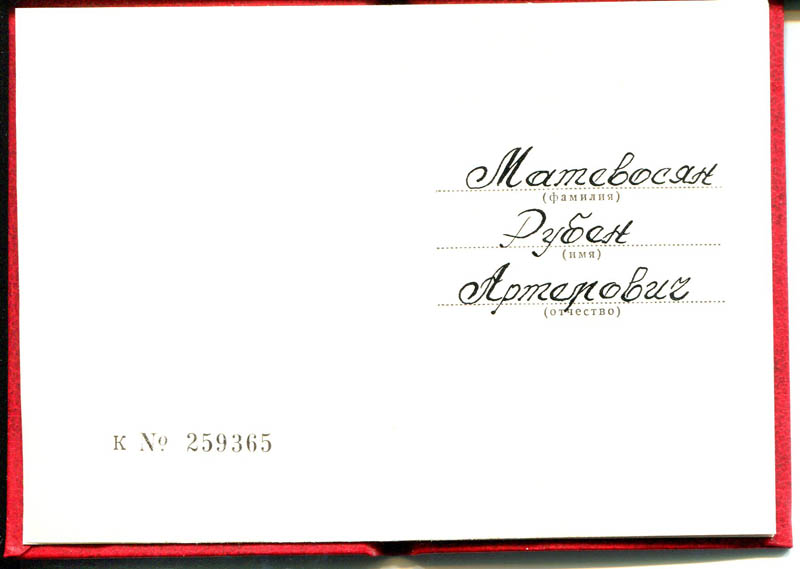 Матевосян
(фамилия)
Рубен
(имя)
Артерович
(отчество)
К № 259365